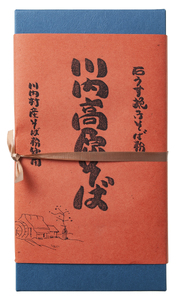 石うす挽きそば粉
川内高原そば
川内村産そば粉使用